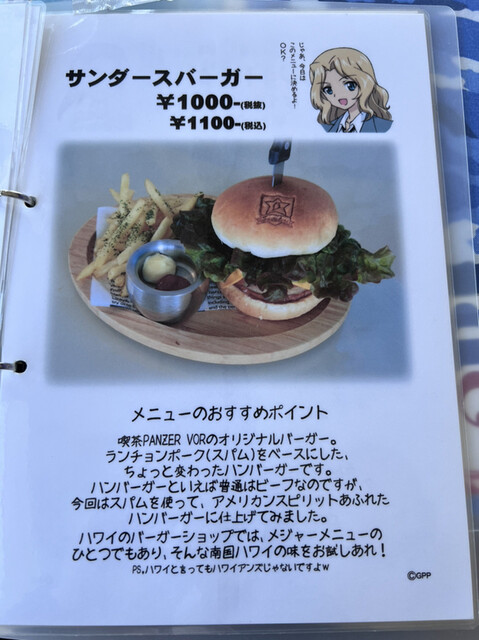 サンダースバーガー
¥1000-(税抜)
¥1100-(税込)
じゃあ、今日は
このメニューに決めるよ!
OK?
メニューのおすすめポイント
喫茶PANZER VORのオリジナルバーガー。
ランチョンポーク(スパム)をベースにした、
ちょっと変わったハンバーガーです。
ハンバーガーといえば普通はビーフなのですが、
今回はスパムを使って、アメリカンスピリットあふれた
ハンバーガーに仕上げてみました。
ハワイのバーガーショップでは、メジャーメニューの
ひとつでもあり、そんな南国ハワイの味をお試しあれ!
PS.ハワイと言ってもハワイアンズじゃないですよw
©GPP